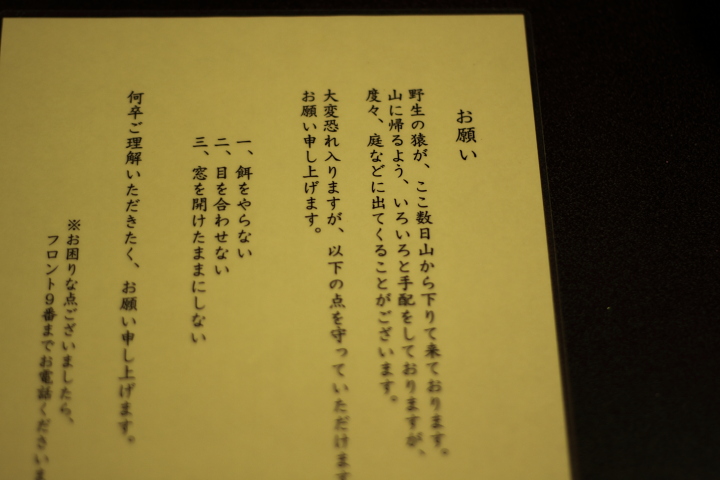 お願い
野生の猿が、ここ数日山から下りて来ております。
山に帰るよう、いろいろと手配をしておりますが、
度々、庭などに出てくることがございます。
大変恐れ入りますが、以下の点を守っていただけます
お願い申し上げます。
一、餌をやらない
二、目を合わせない
三、窓を開けたままにしない
何卒ご理解いただきたく、お願い申し上げます。
※お困りな点ございましたら、
フロント9番までお電話くださいま